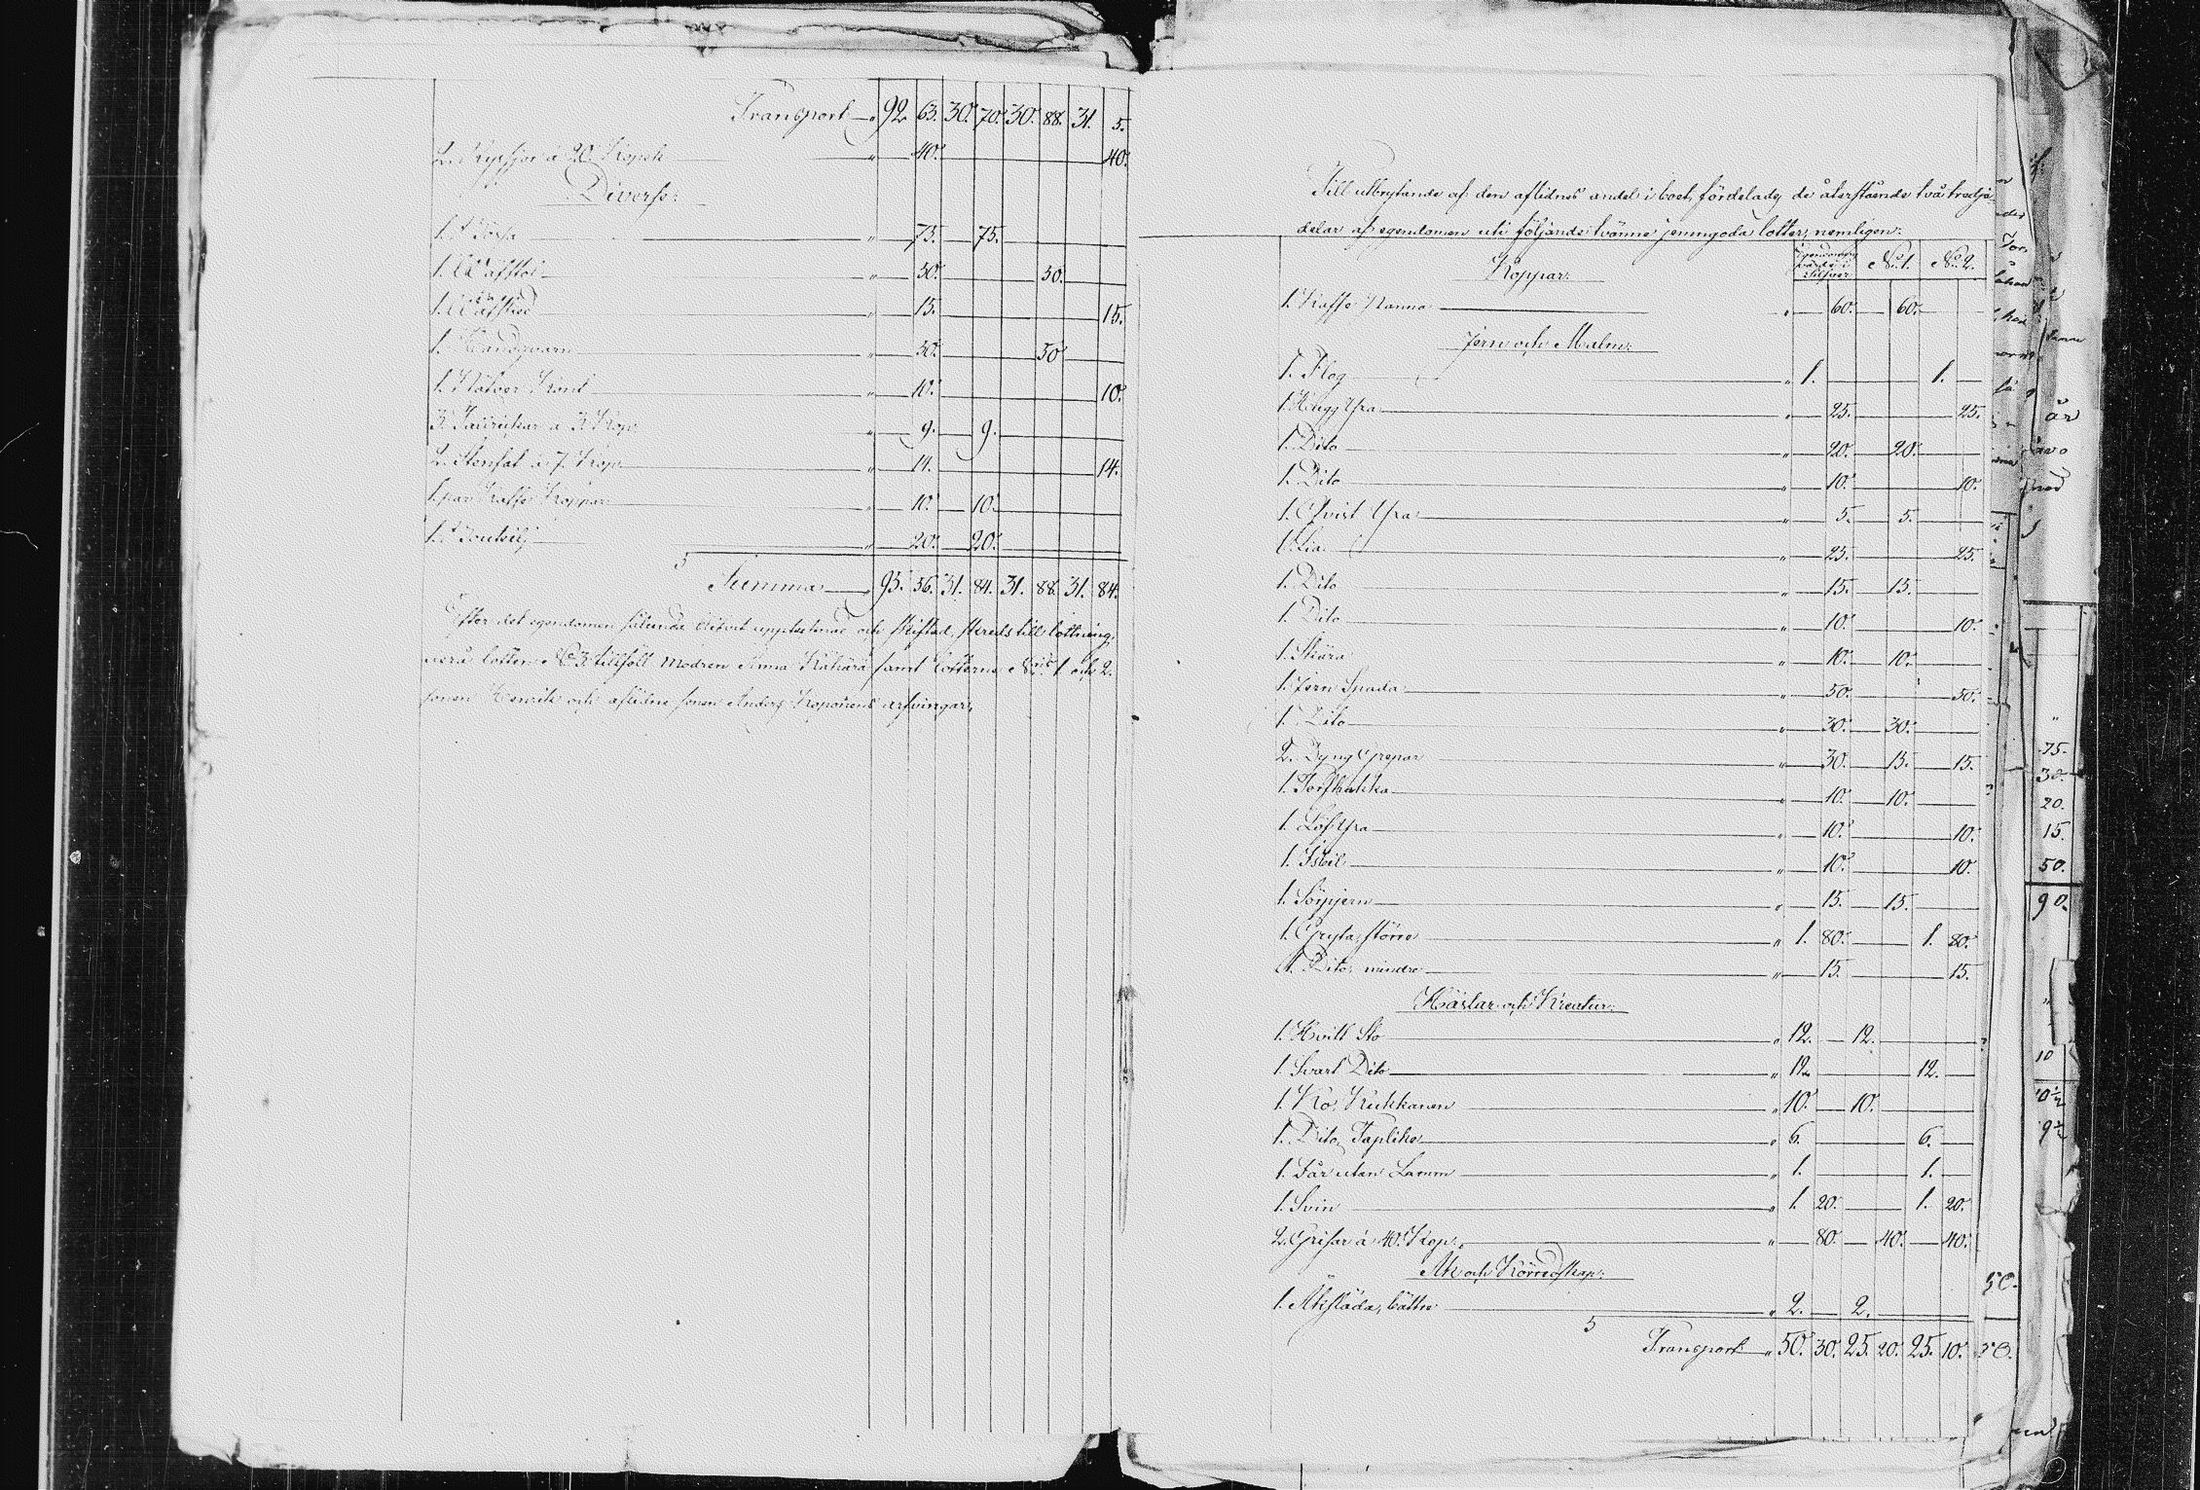 Transport 92. 63. 30. 70. 30. 88. 31. 5.
2. à 20. Kopek " 40. 40.
Diverse:
1. Bössa " 75. 75.
1. Wäfstol " 50. 50.
1. " 15. 15.
1. Handqvarn " 50. 50
1. " 10. 10.
3. à 3. Kop. " 9. 9.
2. Stenfat à 7. Kop. " 14. 14.
1. par Kaffe Koppar " 10. 10.
1. Bouteilj " 20. 20.
Summa 95. 56. 31. 84. 31. 88. 31. 84.
Efter det egendomen sålunda blifvit upptecknad och skiftad, skreds till lottning,
då lotten N:o 3 tillföll modren Anna samt lotterne N:ris 1 och 2.
sonen Henrik och aflidne sonen Anders Koponens arfvingar.
Till utbrytande af den aflidnes andel i boet, fördelades de återstående två tredje
delar af egendomen uti följande tvänne jemngoda lotter, nemligen:
Koppar:
Egendomens värde i Silfver N:o 1. N:o 2.
1. Kaffe Kanna " 60. 60.
Jern och Malm:
1. Plog " 1. 1.
1. Hugg Yxa " 25. 25.
1. Dito " 20. 20.
1. Dito " 10. 10.
1. Qvist Yxa " 5. 5.
1. Lia " 25. 25.
1. Dito " 15. 15.
1. Dito " 10. 10.
1. Skära " 10. 10.
1. Jern Spada " 50. 50.
1. Dito " 30. 30.
2. Dyng Grepar " 30. 15. 15.
1. Torfhacka " 10. 10.
1. Löf Yxa " 10. 10.
1. Isbil " 10. 10.
1. " 15. 15.
1. Gryta, större " 1. 80. 1. 80.
1. Dito, mindre " 15. 15.
Hästar och Kreatur:
1. Hvitt Sto " 12. 12.
1. Svart Dito " 12. 12.
1. Ko, Kukkanen " 10. 10.
1. Dito, Tapliko " 6. 6.
1. Får utan Lamm " 1. 1.
1. Svin " 1. 20. 1. 20.
2. Grisar à 40. Kop. " 80. 40. 40.
Åk och Körredskap:
1. Åksläda, bättre " 2. 2.
Transport " 50. 30. 25. 20. 25. 10.
är
75.
30.
20.
15.
50.
90.
10
50.